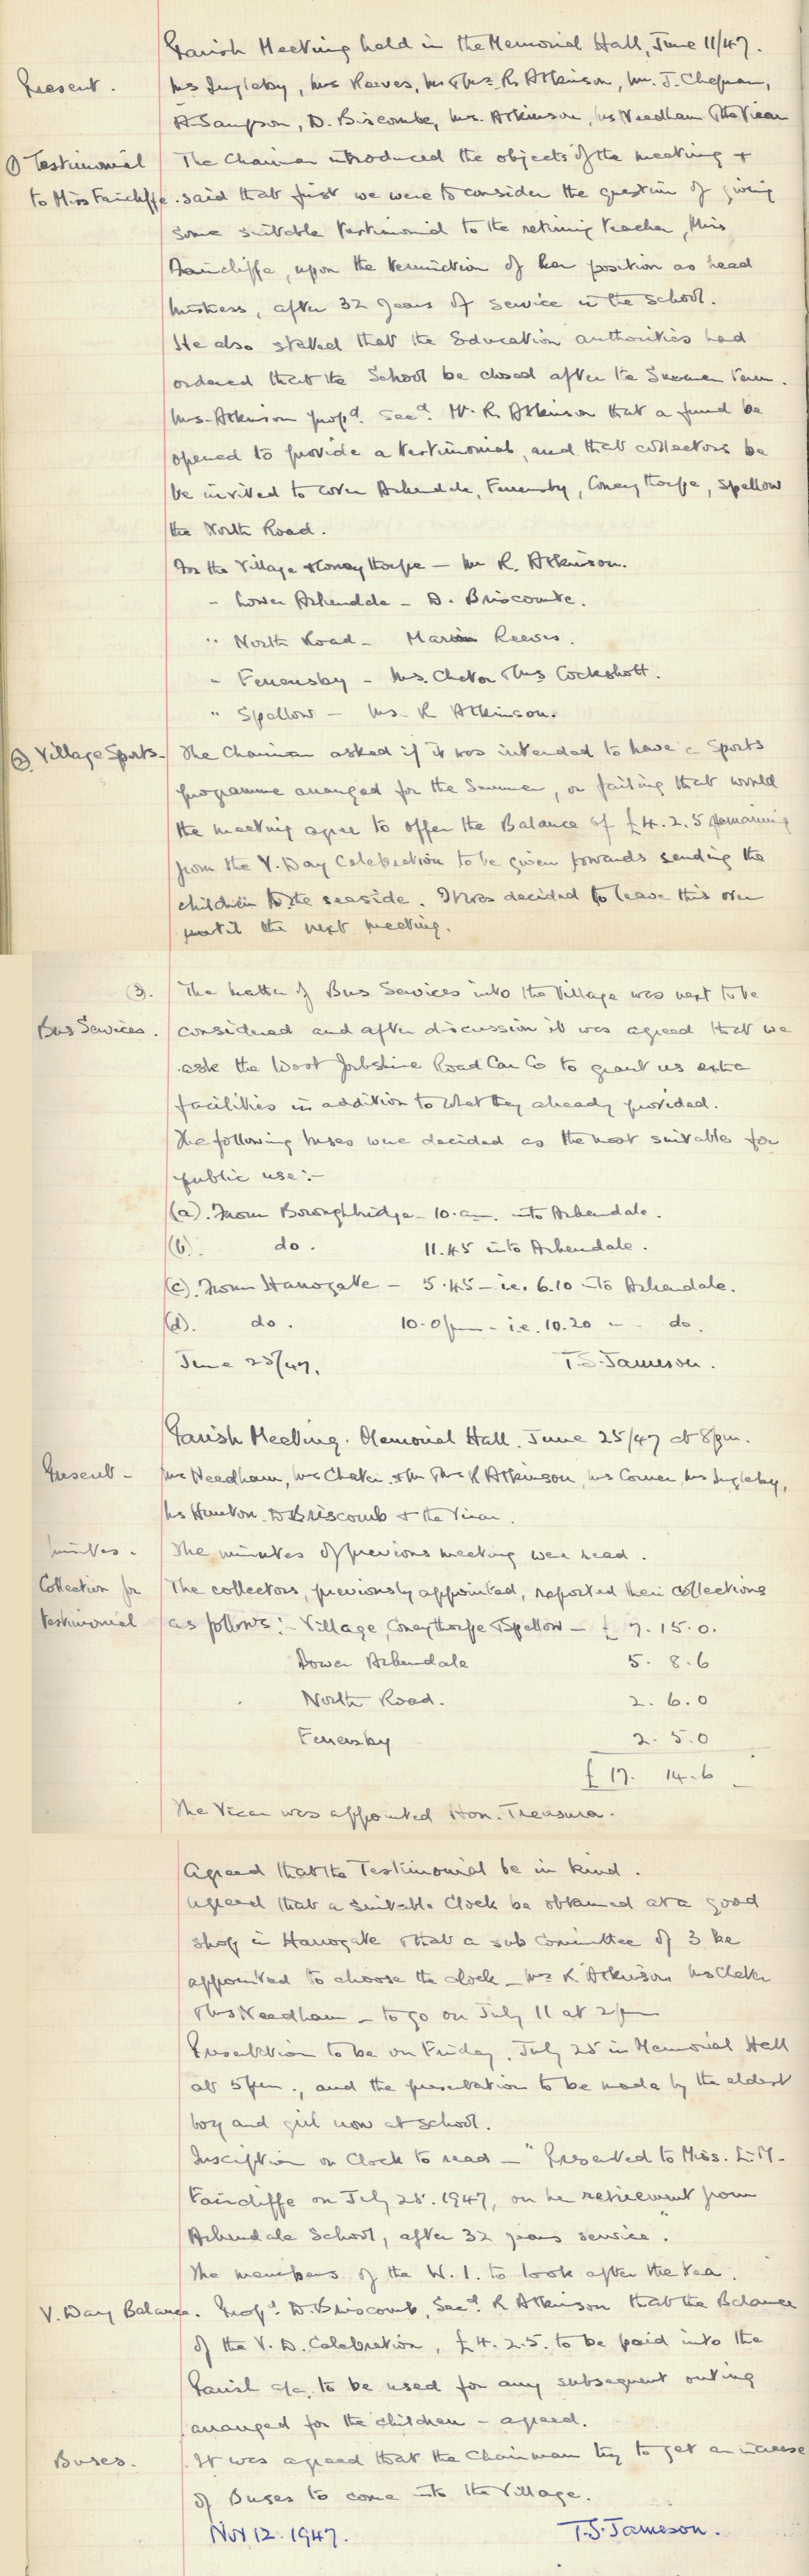 Parish Meeting held in the Memorial Hall, June 11/47.
Present. Mrs Ingleby, Mrs Reeves, Mr & Mrs R. Atkinson, Mr. J. Chapman,
A Sampson, D. Biscombe, Mrs. Atkinson, Mrs Needham & the Vicar
① Testimonial The Chairman introduced the objects of the meeting +
to Miss Faircliffe. said that first we were to consider the question of giving
some suitable testimonial to the retiring teacher, Miss
Faircliffe, upon the termination of her position as head
mistress, after 32 years of service in the school.
He also stated that the Education authorities had
ordered that the School be closed after the Summer term.
Mrs. Atkinson propd. Secd. Mr. R. Atkinson that a fund be
opened to provide a testimonial, and that collectors be
be invited to cover Arkendale, Ferrensby, Coneythorpe, Spellow
the North Road.
For the Village & Coneythorpe — Mr R. Atkinson.
" Lower Arkendale — D. Briscombe.
" North Road — Marion Reeves.
" Ferrensby — Mrs. Chater & Mrs Cockshott.
" Spellow — Mrs. R Atkinson.
② Village Sports — The Chairman asked if it was intended to have a Sports
programme arranged for the Summer, or failing that would
the meeting agree to offer the Balance of £4.2.5 remaining
from the V. Day Celebration to be given towards sending the
children to the seaside. It was decided to leave this over
until the next meeting.
(3). The matter of Bus Services into the Village was next to be
Bus Services. considered and after discussion it was agreed that we
ask the West Yorkshire Road Car Co to grant us extra
facilities in addition to what they already provided.
The following buses were decided as the most suitable for
public use:—
(a). From Boroughbridge — 10.am. into Arkendale.
(b). do. 11.45 into Arkendale.
(c). From Harrogate — 5.45 — i.e. 6.10 into Arkendale.
(d). do. 10.0pm — i.e. 10.20 " — do.
June 25/47. T.S. Jameson.
Parish Meeting. Memorial Hall. June 25/47 at 8pm.
Present — Mrs Needham, Mrs Chater, Mr & Mrs R Atkinson, Mrs Corner, Mrs Ingleby,
Mrs Hunton. D Briscomb & the Vicar.
Minutes. The minutes of previous meeting were read.
Collection for The collectors, previously appointed, reported their collections
testimonial as follows:— Village, Coneythorpe & Spellow — £ 7. 15. 0.
Lower Arkendale 5. 8. 6
North Road. 2. 6. 0
Ferrensby 2. 5. 0
£ 17. 14. 6
The Vicar was appointed Hon. Treasurer.
Agreed that the Testimonial be in kind.
Agreed that a suitable Clock be obtained at a good
shop in Harrogate & that a sub Committee of 3 be
appointed to choose the clock — Mrs R Atkinson Mrs Chater
& Mrs Needham — to go on July 11 at 2pm
Presentation to be on Friday, July 25 in Memorial Hall
at 5pm., and the presentation to be made by the eldest
boy and girl now at school.
Inscription on Clock to read — "Presented to Miss. L.M.
Faircliffe on July 25. 1947, on her retirement from
Arkendale School, after 32 years service".
The members of the W. I. to look after the tea.
V. Day Balance. Propd. D. Briscomb, Secd. R Atkinson that the Balance
of the V. D. Celebration, £4. 2. 5. to be paid into the
Parish a/c, to be used for any subsequent outing
arranged for the children — agreed.
Buses. It was agreed that the Chairman try to get an increase
of Buses to come into the Village.
Nov 12. 1947. T.S. Jameson.